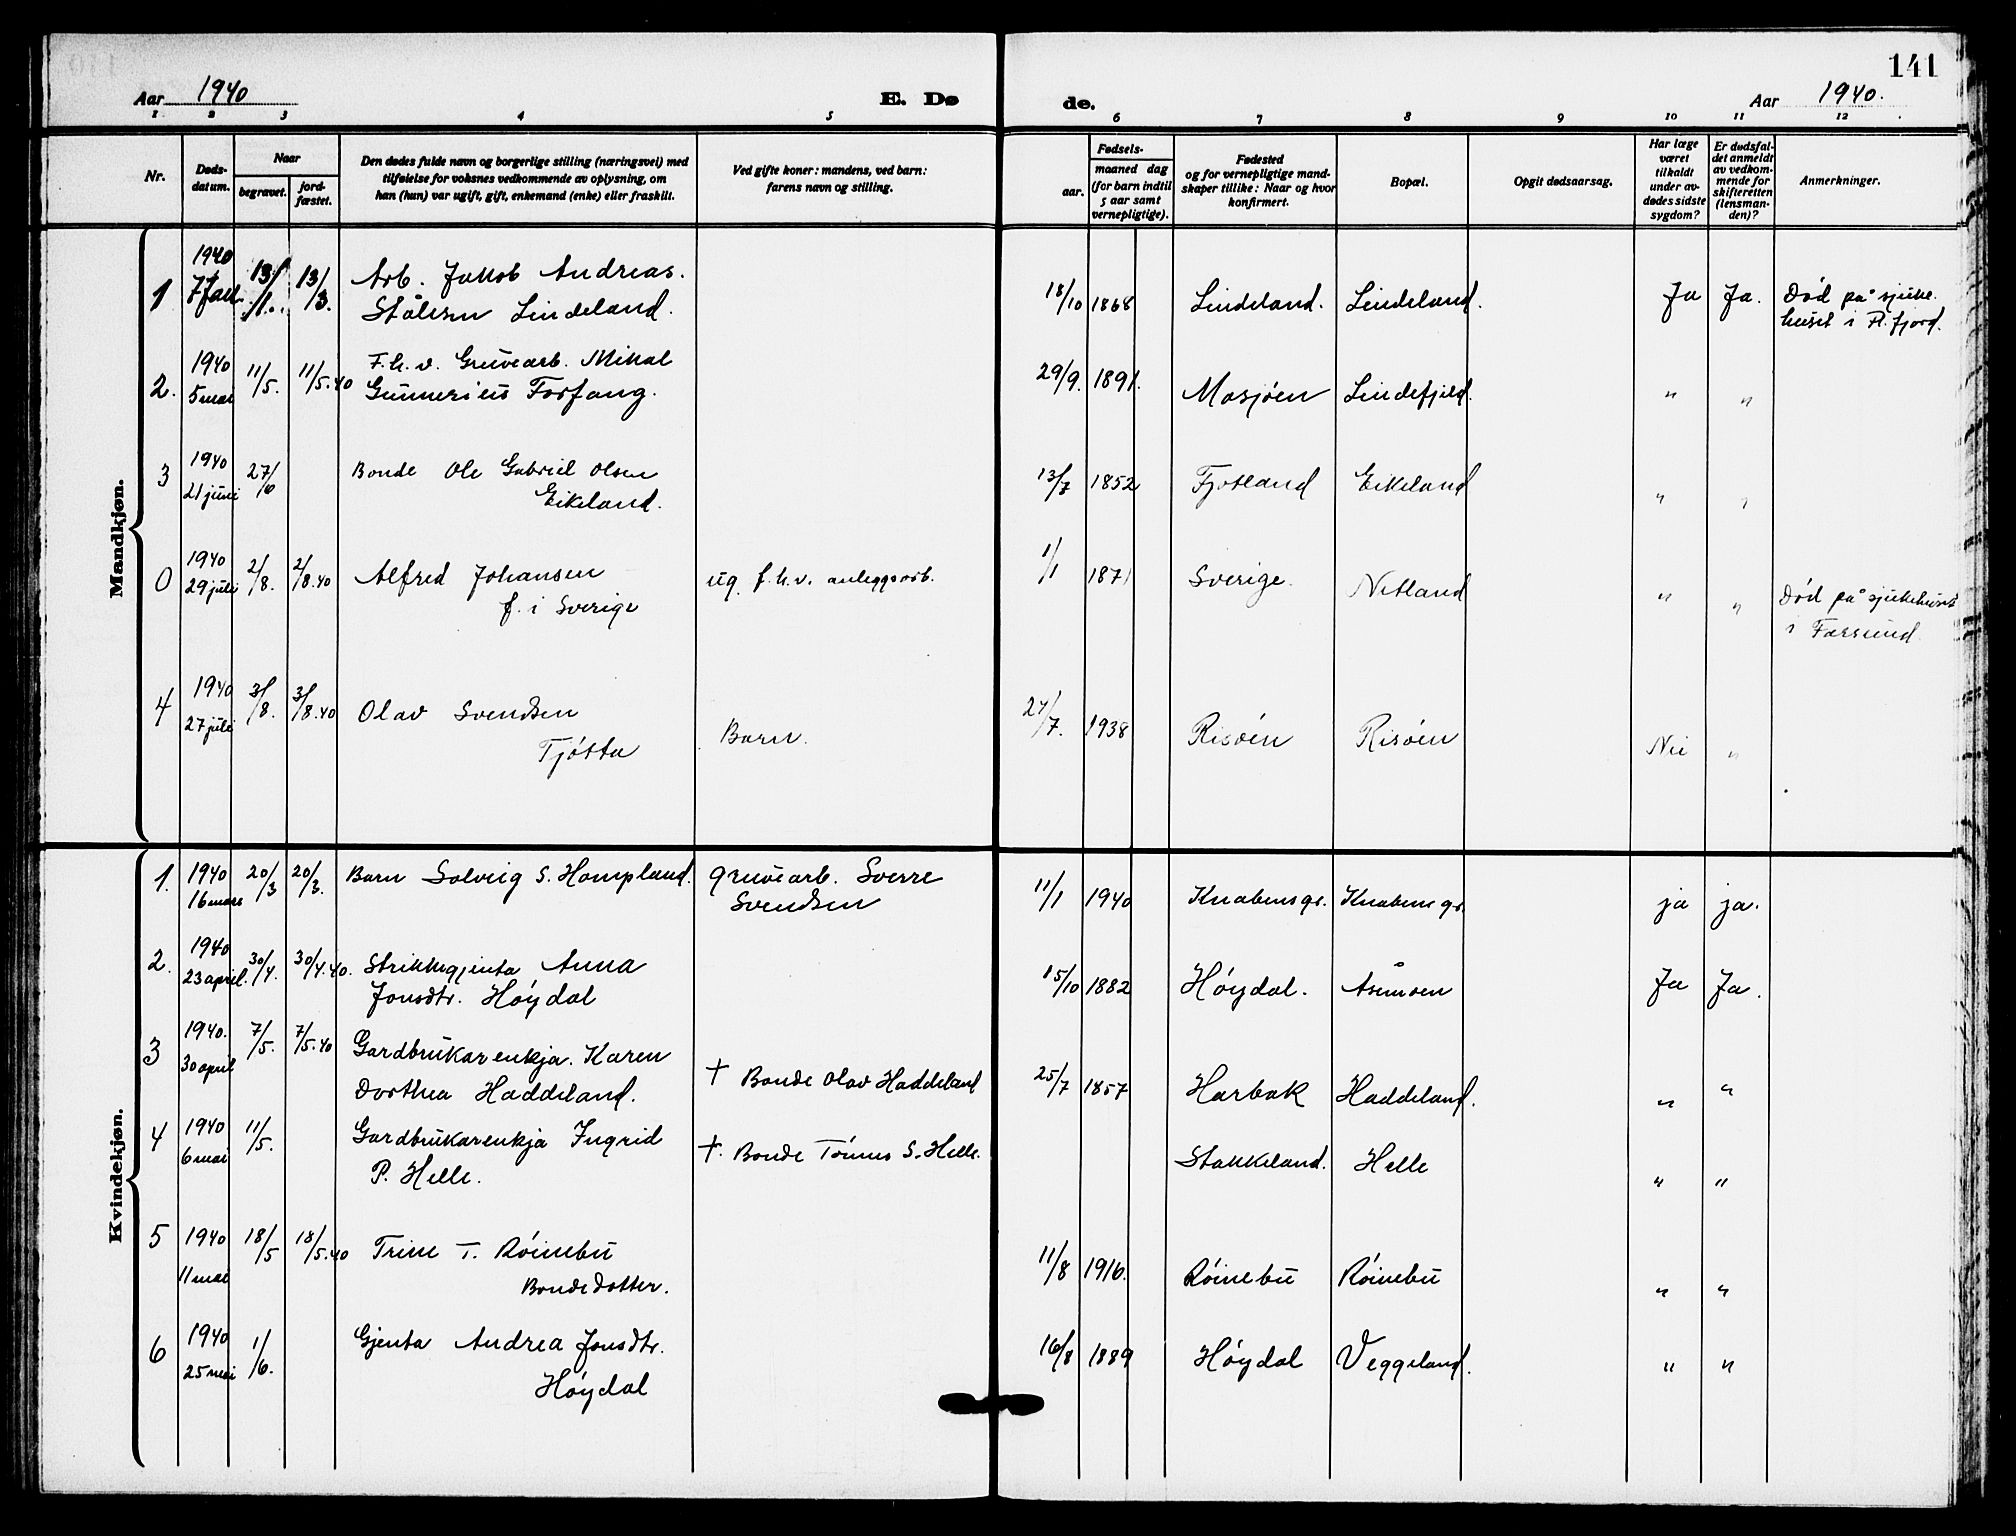 141
Aar 1940
E. Dø
de.
Aar 1940.
1 2 3 4 5 6 7 8 9 10 11 12
Nr.
Døds-
datum.
Naar
begravet.
jord-
fæstet.
Den dødes fulde navn og borgerlige stilling (næringsvei) med
tilføielse for voksnes vedkommende av oplysning, om
han (hun) var ugift, gift, enkemand (enke) eller fraskilt.
Ved gifte koner: mandens, ved barn:
farens navn og stilling.
Fødsels-
aar.
maaned dag
(for barn indtil
5 aar samt
vernepligtige).
Fødested
og for vernepligtige mand-
skaper tillike: Naar og hvor
konfirmert.
Bopæl.
Opgit dødsaarsag.
Har læge
været
tilkaldt
under av-
dødes sidste
sygdom?
Er dødsfal-
det anmeldt
av vedkom-
mende for
skifteretten
(lensman-
den)?
Anmerkninger.
Mandkjøn.
1 1940 7 jan. 13/1. 13/3. Arb. Jakob Andreas.
Stålesen Lindeland. 18/10 1868 Lindeland. Lindeland. Ja Ja. Død på sjuke.
huset i Fl. fjord.
2. 1940 5 mai 11/5. 11/5.40 F.h.v. Gruvearb. Mikal
Gunnerius Forfang. 29/9. 1891. Mosjøen Lindefjeld. " "
3 1940 21 juni 27/6 Bonde Ole Gabriel Olsen
Eikeland. 13/7 1852 Fjotland Eikeland " "
0 1940 29 juli 2/8. 2/8.40 Alfred Johansen ug. f.h.v. anleggsarb. 1/1 1871 Sverige. Netland " " Død på sjukehuset
f. i Sverige i Farsund.
4 1940 27 juli 3/8. 3/8.40 Olav Svendsen
Tjøtta Barn. 27/7. 1938 Risøen Risøen Nei "
Kvindekjøn.
1. 1940 16 mars 20/3 20/3. Barn Solveig S. Hompland. gruvearb. Sverre
Svendsen 11/1 1940 Knabens gr. Knabens gr. ja ja.
2. 1940 23 april. 30/4. 30/4.40. Strikkegjenta Anna
Jonsdtr. Høydal 15/10 1882 Høydal. Åsumoen Ja Ja.
3 1940. 30 april 7/5. 7/5.40 Gardbrukarenkja. Karen
Dorthea Haddeland. † Bonde Olav Haddeland 25/7 1857 Harbak Haddeland. " "
4 1940 6 mai 11/5. Gardbrukarenkja Ingrid
P. Helle. †. Bonde Tønnes S. Helle. Stakkeland. Helle " "
5 1940 11 mai 18/5 18/5.40 Trine T. Røinebu
Bondedotter. 11/8 1916. Røinebu Røinebu " "
6 1940 25 mai 1/6. Gjenta Andrea Jonsdtr.
Høydal 16/8 1889 Høydal Veggeland. " "